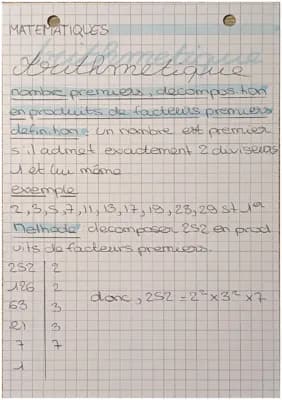 MATEMATIQUES
Arithmetique
nombre premiers, decomposition
en produits de facteurs premiers
definition: un nombre est premier
s'il admet exactement 2 diviseurs
1 et lui même
exemple
2,3,5,7,11,13,17,19,23,29 st 1er
Methode decomposer 252 en prod
uits de facteurs premiers.
252 | 2
126 | 2
63 | 3
21 | 3
7 | 7
1
donc, 252 = 2² x 3² x 7